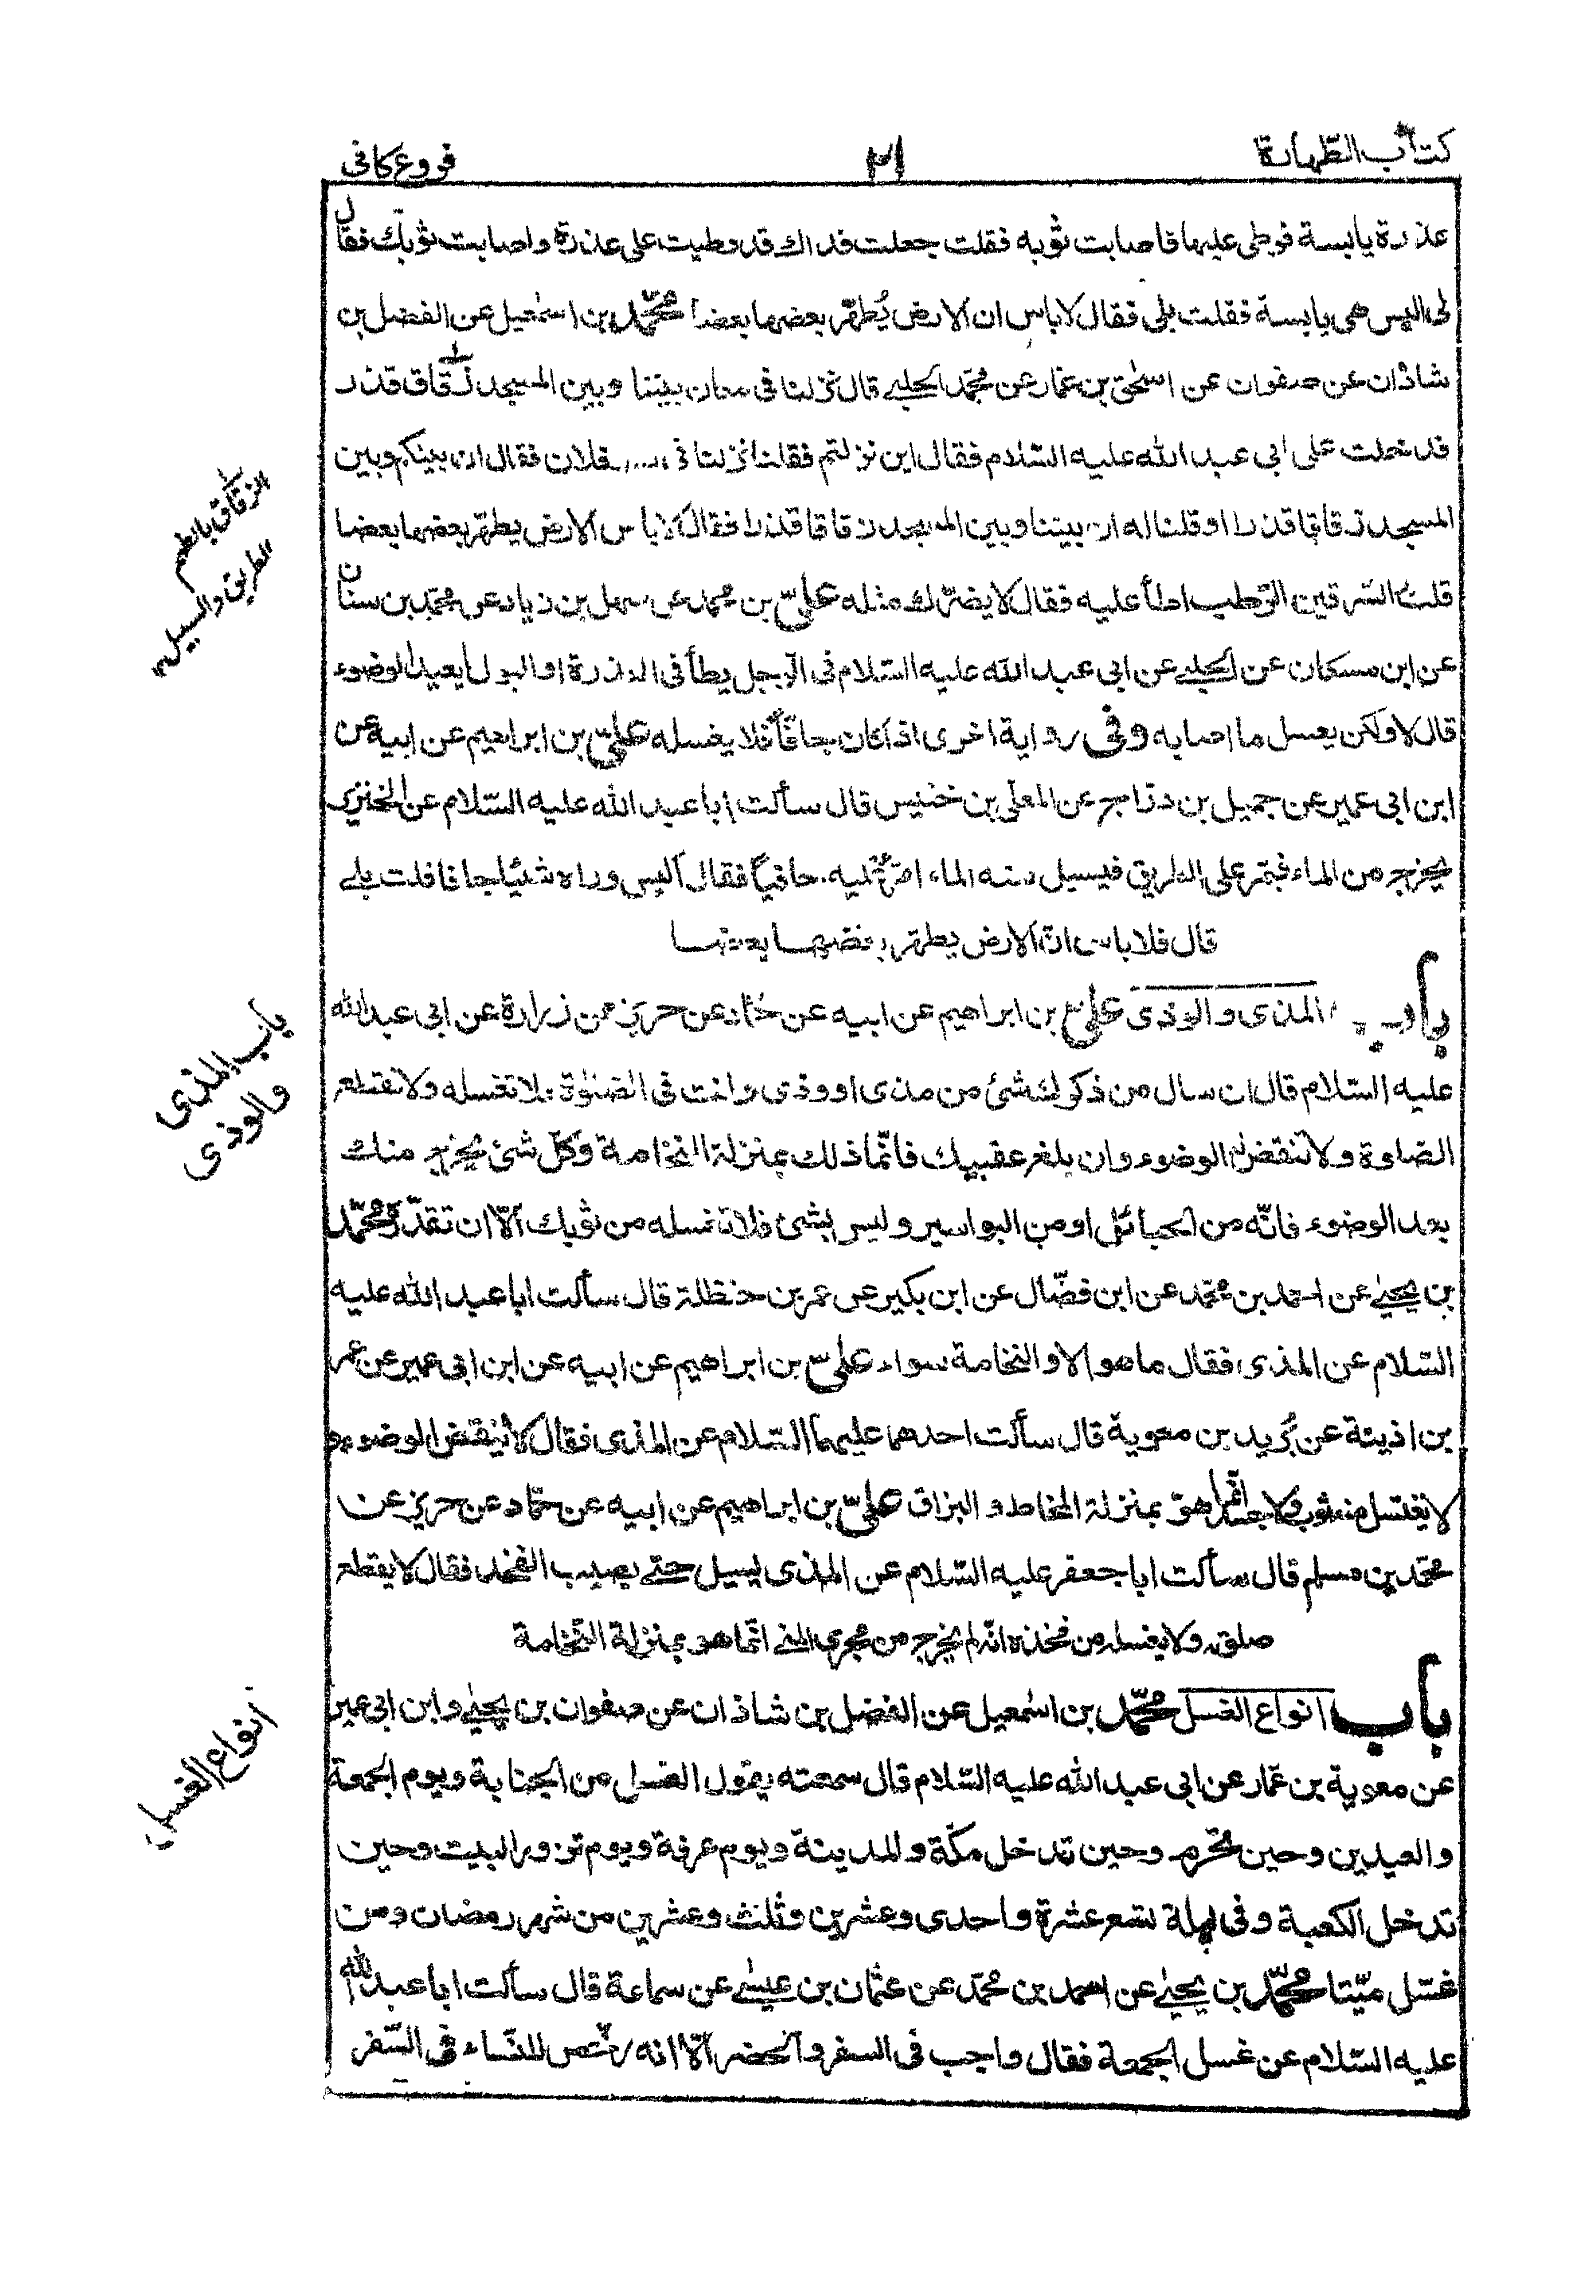 كتاب الطهارة
٢١
فروع كافى
عذرة يابسة فوطى عليها فاصابت ثوبه فقلت جعلت فداك قد وطيت على عذرة واصابت ثوبك فقال
لى اليس هى يابسة فقلت بلى فقال لا باس ان الارض يُطهّر بعضها بعضا محمّد بن اسمٰعيل عن الفضل بن
شاذان عن صفوان عن اسحٰق بن عمار عن محمّد الحلبى قال نزلنا فى مكان بيننا وبين المسجد زقاق قذر
فدخلت على ابى عبد الله عليه السّلام فقال اين نزلتم فقلنا نزلنا فى فلان فقال ان بينكم وبين
المسجد زقاقا قذرا او قلنا له ان بيننا وبين المسجد زقاقا قذرا فقال لا باس الارض يطهّر بعضها بعضا
قلت السّرقين الرّطب اطأ عليه فقال لا يضرّك مثله علىّ بن محمد عن سهل بن زياد عن محمّد بن سنان
عن ابن مسكان عن الحلبى عن ابى عبد الله عليه السّلام فى الرّجل يطأ فى العذرة او البول أيعيد الوضوء
قال لا ولكن يغسل ما اصابه وفى رواية اخرى اذا كان جافّا فلا يغسله علىّ بن ابراهيم عن ابيه عن
ابن ابى عمير عن جميل بن درّاج عن المعلّى بن خنيس قال سألت ابا عبد الله عليه السّلام عن الخنزير
يخرج من الماء فيمّر على الطريق فيسيل منه الماء امرّ عليه حافيًا فقال أليس وراه شئيا جافا قلت بلى
قال فلا باس انّ الارض يطهّر بعضها بعضا
باب المذى والوذى علىّ بن ابراهيم عن ابيه عن حمّاد عن حريز عن زرارة عن ابى عبد الله
عليه السّلام قال ان سال من ذكرك شئ من مذى او وذى وانت فى الصّلوٰة فلا تغسله ولا تقطع
الصلوة ولا تنقض له الوضوء وان بلغ عقبيك فانّما ذلك بمنزلة النّخامة وكلّ شئ يخرج منك
بعد الوضوء فانّه من الحبائل او من البواسير وليس بشئ فلا تغسله من ثوبك الّا ان تقذّره محمّد
بن يحيىٰ عن احمد بن محمّد عن ابن فضّال عن ابن بكير عن عمر بن حنظلة قال سألت ابا عبد الله عليه
السّلام عن المذى فقال ما هو الا والنخامة سواء علىّ بن ابراهيم عن ابيه عن ابن ابى عمير عن عمر
بن اذينة عن بُريد بن معوية قال سألت احدهما عليهما السّلام عن المذى فقال لا ينقض الوضوء و
لا يغتسل منه ثوب ولا جسد انّما هو بمنزلة المخاط والبزاق علىّ بن ابراهيم عن ابيه عن حمّاد عن حريز عن
محمّد بن مسلم قال سألت ابا جعفر عليه السّلام عن المذى يسيل حتّى يصيب الفخذ فقال لا يقطع
صلوته ولا يغسله من فخذه انّه لم يخرج من مجرى المنى انّما هو بمنزلة النّخامة
باب انواع الغسل محمّد بن اسمٰعيل عن الفضل بن شاذان عن صفوان بن يحيىٰ وابن ابى عمير
عن معوية بن عمّار عن ابى عبد الله عليه السّلام قال سمعته يقول الغسل من الجنابة ويوم الجمعة
والعيدين وحين تحرم وحين تدخل مكّة والمدينة ويوم عرفة ويوم تزور البيت وحين
تدخل الكعبة وفى ليلة تسع عشرة واحدى وعشرين وثلث وعشرين من شهر رمضان ومن
غسّل ميّتا محمّد بن يحيىٰ عن احمد بن محمّد عن عثمٰن بن عيسىٰ عن سماعة قال سألت ابا عبد الله
عليه السّلام عن غسل الجمعة فقال واجب فى السفر والحضر الّا انه رخّص للنّساء فى السّفر
الزقاق بالضم
الطريق والسبيل
باب المذى
والوذى
انواع الغسل